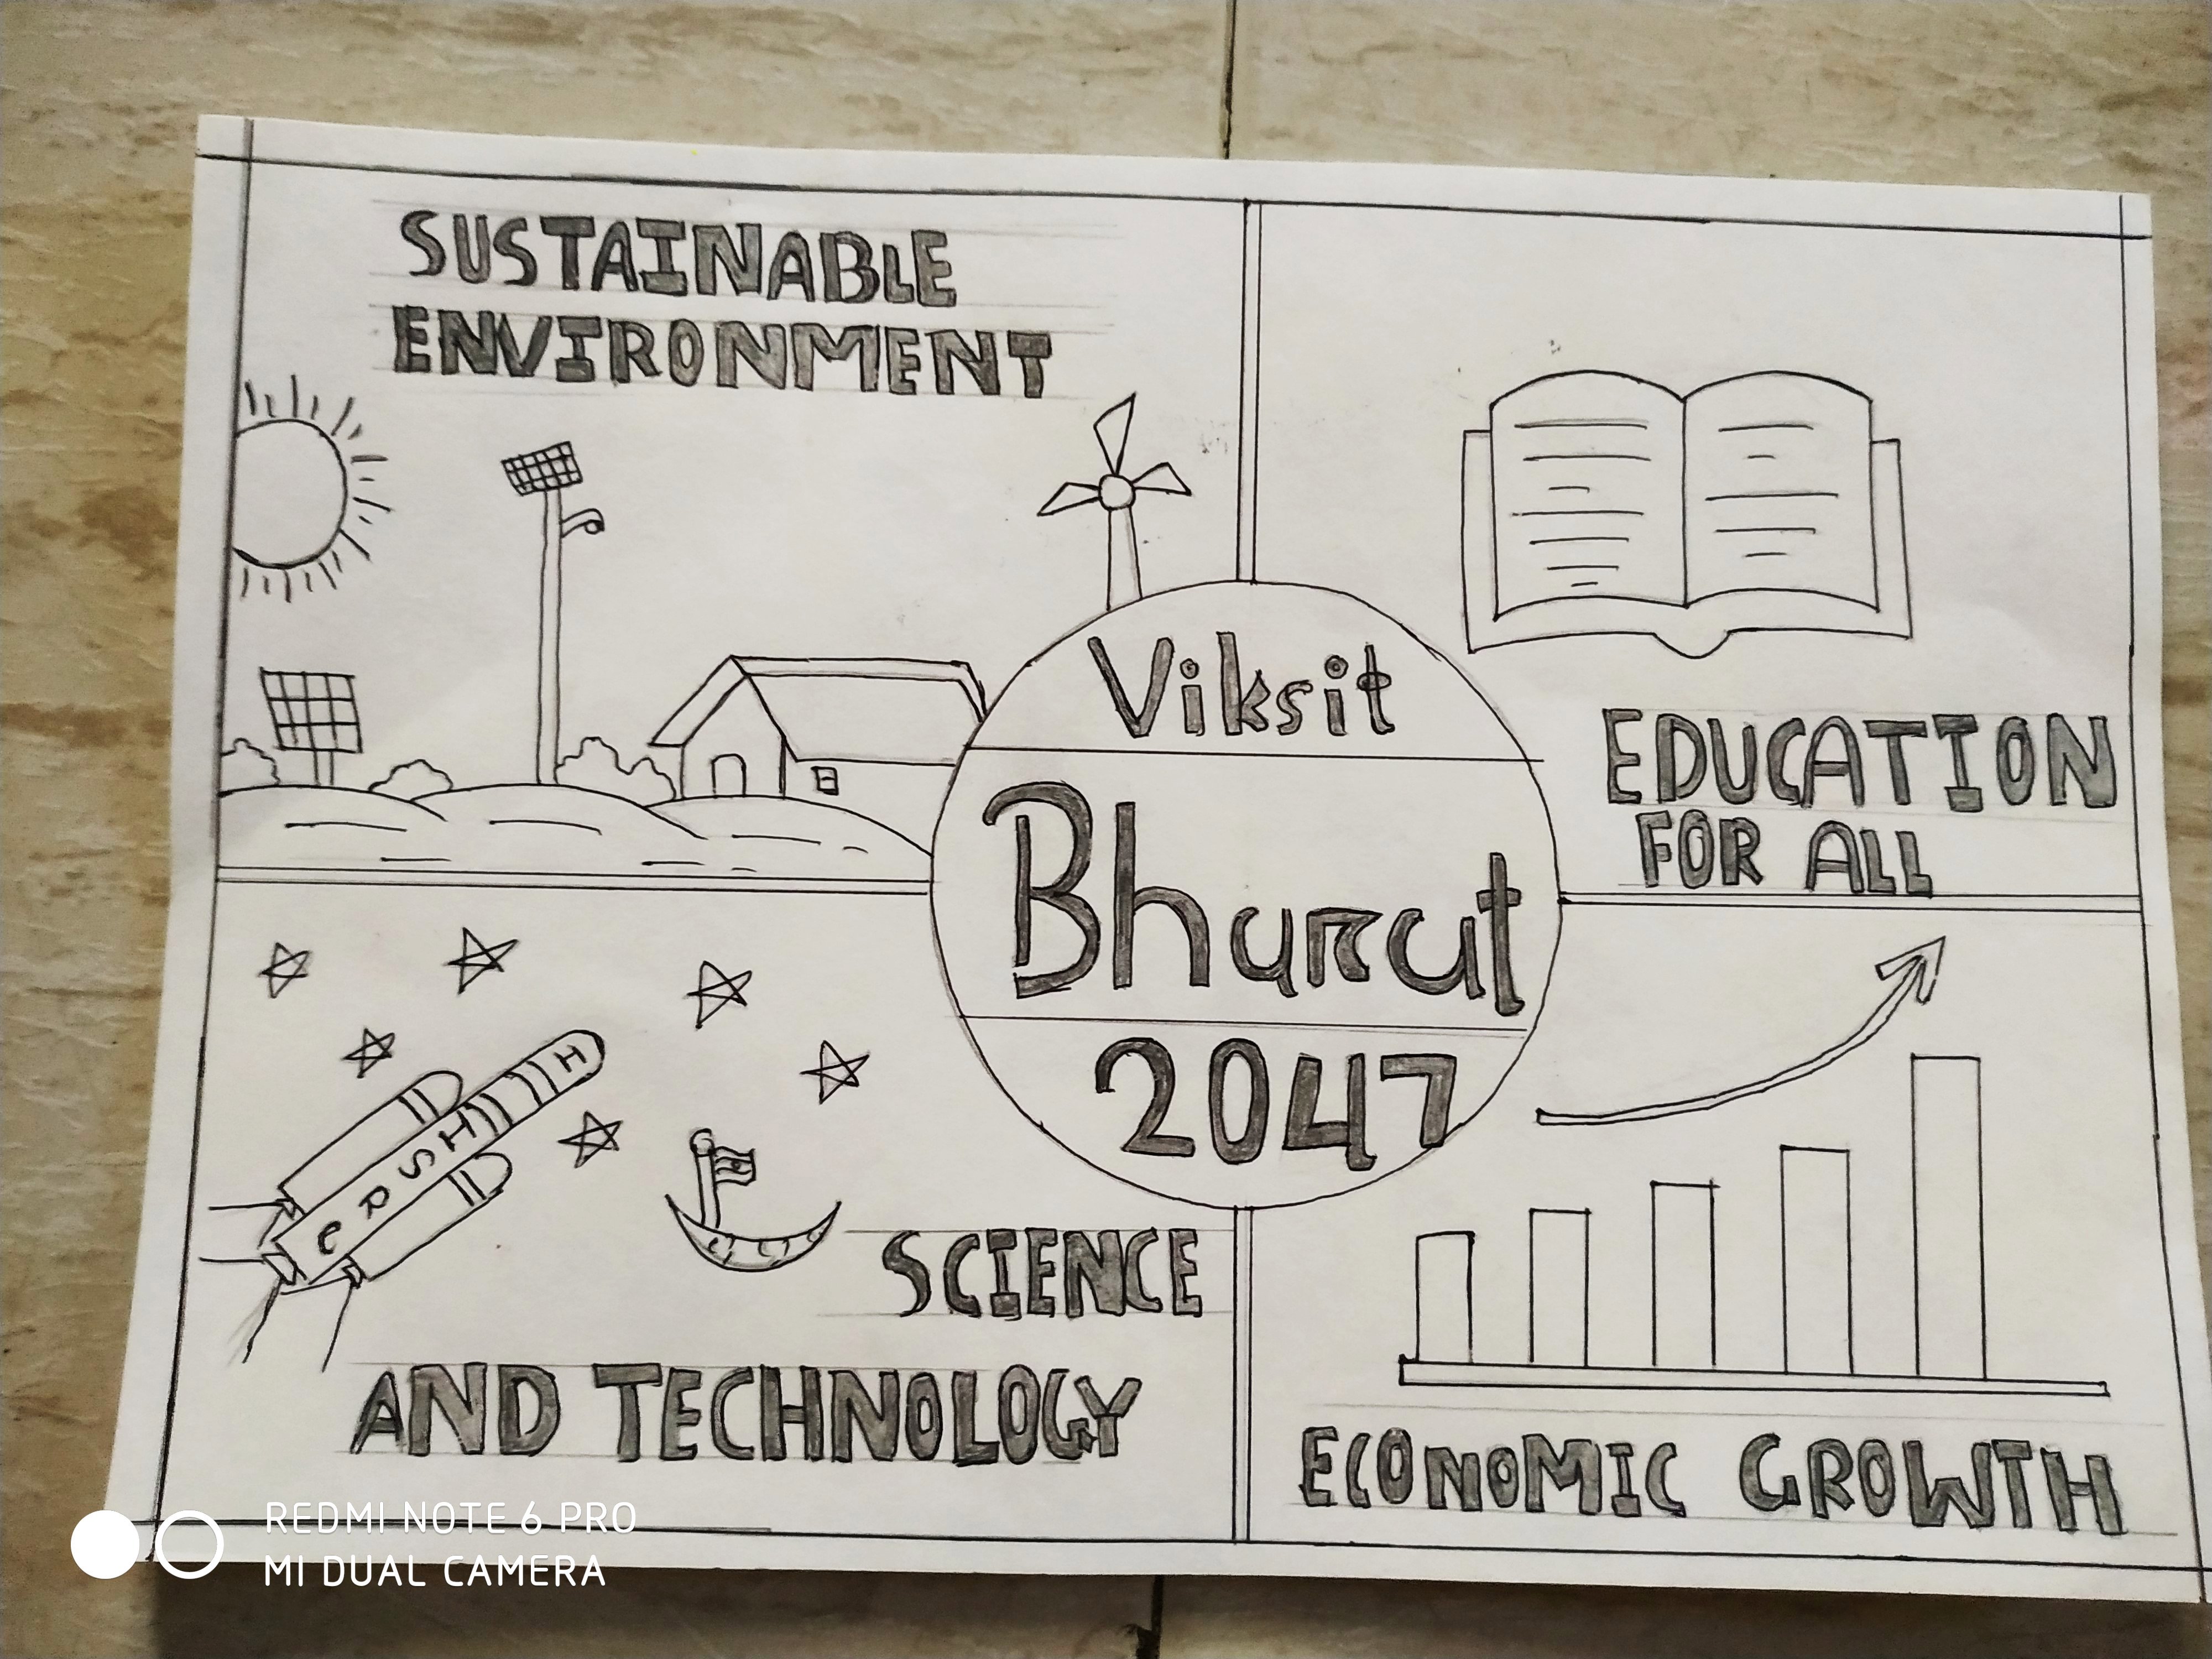 SUSTAINABLE
ENVIRONMENT
EDUCATION
FOR ALL
Viksit
Bharat
2047
SCIENCE
AND TECHNOLOGY
ECONOMIC GROWTH
REDMI NOTE 6 PRO
MI DUAL CAMERA